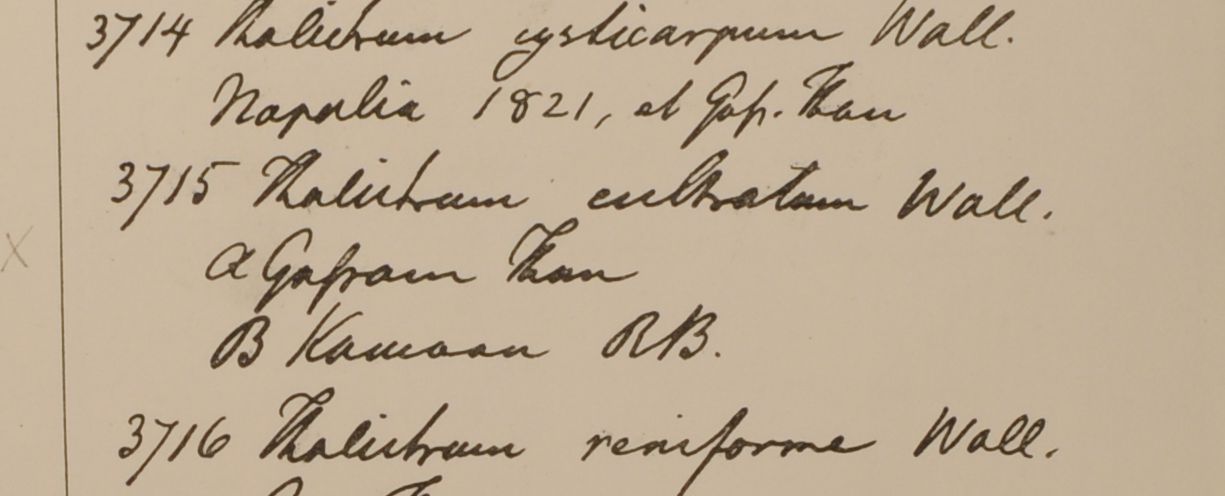 3714 Thalictrum cysticarpum Wall.
Napalia 1821, et Gosf. Than
3715 Thalictrum cultratum Wall.
a Gosfram Than
B Kamaon RB.
3716 Thalictrum reniforme Wall.